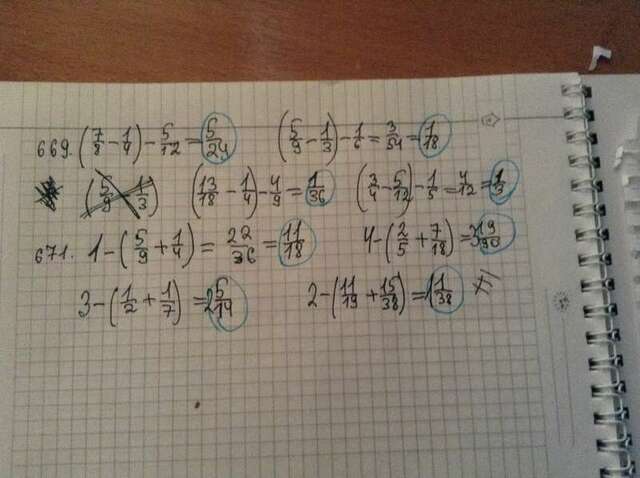 669. (7/8 - 1/4) - 5/12 = 5/24 (5/9 - 1/3) - 1/6 = 3/54 = 1/18
(5/9 - 1/3) (13/18 - 1/4) - 4/9 = 1/36 (3/4 - 5/12) - 1/5 = 4/12 = 1/3
671. 1 - (5/9 + 1/4) = 22/36 = 11/18 4 - (2/5 + 7/18) = 3 19/90
3 - (1/2 + 1/7) = 2 5/14 2 - (11/19 + 15/38) = 1 1/38